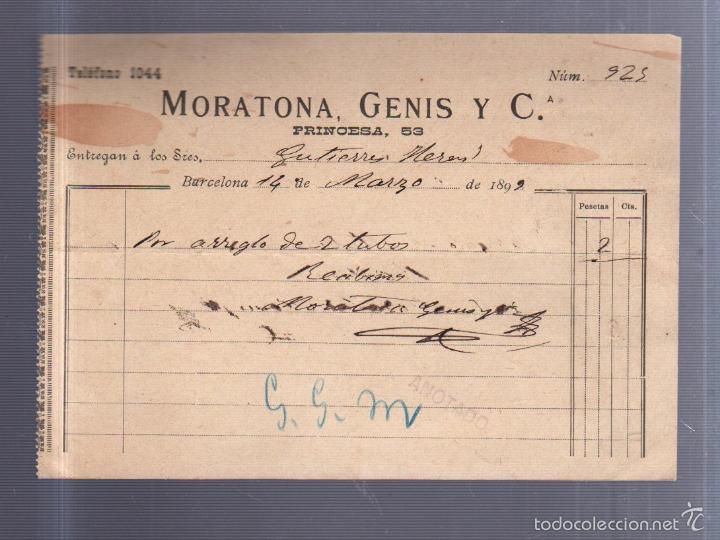 Teléfono 1044
Núm. 925
MORATONA, GENIS Y C.ª
PRINCESA, 53
Entregan á los Sres. Gutierrez Heros
Barcelona 14 de Marzo de 1899
Pesetas Cts.
Por arreglo de 2 tubos 2
Recibimos
Moratona Genis y C
G. G. M
ANOTADO
todocoleccion.net